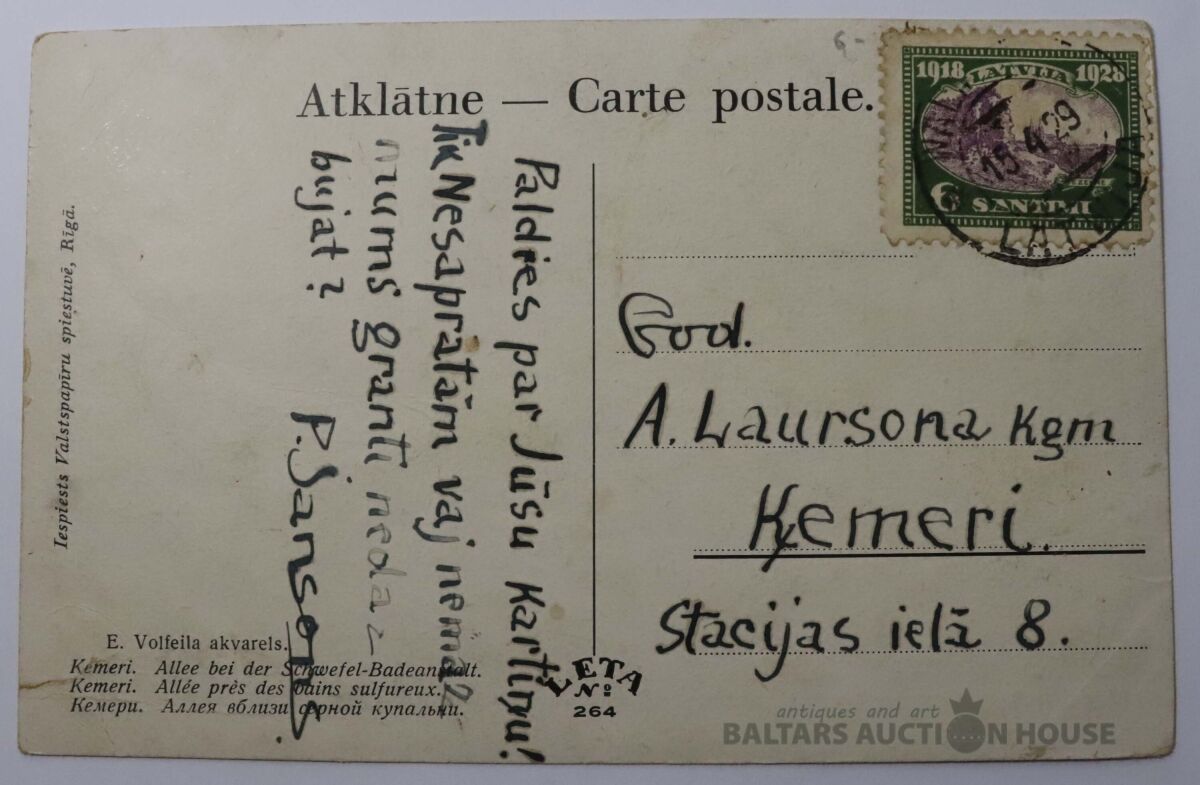 Atklātne — Carte postale.
1918 LATVIJA 1928
15 4 29
6 SANTIMI
LATVIJA
Paldies par Jūsu Kartiņu!
Tik Nesapratām vaj nemaz
mums granti nedaz
bujat?
P. Jansons.
God.
A. Laursona Kgm
Ķemeri.
Stacijas ielā 8.
Iespiests Valstspapīru spiestuvē, Rīgā.
E. Volfeila akvarels.
Ķemeri. Allee bei der Schwefel-Badeanstalt.
Kemeri. Allée près des bains sulfureux.
Кемери. Аллея вблизи серной купальни.
LETA
№
264
antiques and art
BALTARS AUCTION HOUSE